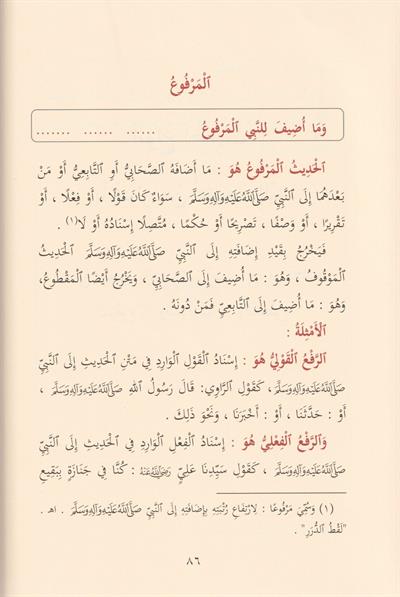 اَلْمَرْفُوعُ
وَمَا أُضِيفَ لِلنَّبِي الْمَرْفُوعُ ...... ...... ......
اَلْحَدِيثُ الْمَرْفُوعُ هُوَ : مَا أَضَافَهُ الصَّحَابِيُّ أَوِ التَّابِعِيُّ أَوْ مَنْ
بَعْدَهُمَا إِلَى النَّبِيِّ صَلَّى اللهُ عَلَيْهِ وَآلِهِ وَسَلَّمَ ، سَوَاءٌ كَانَ قَوْلًا ، أَوْ فِعْلًا ، أَوْ
تَقْرِيرًا ، أَوْ وَصْفًا ، تَصْرِيحًا أَوْ حُكْمًا ، مُتَّصِلًا إِسْنَادُهُ أَوْ لَا(١) .
فَيَخْرُجُ بِقَيْدِ إِضَافَتِهِ إِلَى النَّبِيِّ صَلَّى اللهُ عَلَيْهِ وَآلِهِ وَسَلَّمَ الْحَدِيثُ
الْمَوْقُوفُ ، وَهُوَ : مَا أُضِيفَ إِلَى الصَّحَابِيِّ ، وَيَخْرُجُ أَيْضًا الْمَقْطُوعُ،
وَهُوَ : مَا أُضِيفَ إِلَى التَّابِعِيِّ فَمَنْ دُونَهُ .
اَلْأَمْثِلَةُ :
اَلرَّفْعُ الْقَوْلِيُّ هُوَ : إِسْنَادُ الْقَوْلِ الْوَارِدِ فِي مَتْنِ الْحَدِيثِ إِلَى النَّبِيِّ
صَلَّى اللهُ عَلَيْهِ وَآلِهِ وَسَلَّمَ ، كَقَوْلِ الرَّاوِي: قَالَ رَسُولُ اللهِ صَلَّى اللهُ عَلَيْهِ وَآلِهِ وَسَلَّمَ ،
أَوْ : حَدَّثَنَا ، أَوْ : أَخْبَرَنَا ، وَنَحْوَ ذَلِكَ .
وَالرَّفْعُ الْفِعْلِيُّ هُوَ : إِسْنَادُ الْفِعْلِ الْوَارِدِ فِي الْحَدِيثِ إِلَى النَّبِيِّ
صَلَّى اللهُ عَلَيْهِ وَآلِهِ وَسَلَّمَ ، كَقَوْلِ سَيِّدِنَا عَلِيٍّ رَضِيَ اللهُ عَنْهُ : كُنَّا فِي جَنَازَةٍ بِبَقِيعِ
(١) وَسُمِّيَ مَرْفُوعًا : لِارْتِفَاعِ رُتْبَتِهِ بِإِضَافَتِهِ إِلَى النَّبِيِّ صَلَّى اللهُ عَلَيْهِ وَآلِهِ وَسَلَّمَ . اهـ .
"لَقْطُ الدُّرَرِ" .
٨٦